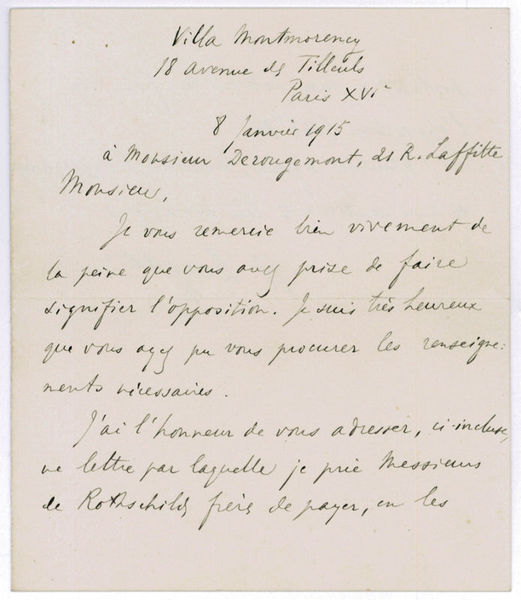 Villa Montmorency
18 avenue des Tilleuls
Paris XVIe
8 Janvier 1915
à Monsieur Derougemont, 21 R. Laffitte
Monsieur,
Je vous remercie bien vivement de
la peine que vous avez prise de faire
signifier l'opposition. Je suis très heureux
que vous ayez pu vous procurer les renseigne-
ments nécessaires.
J'ai l'honneur de vous adresser, ci-incluse,
une lettre par laquelle je prie Messieurs
de Rothschild frères de payer, en les